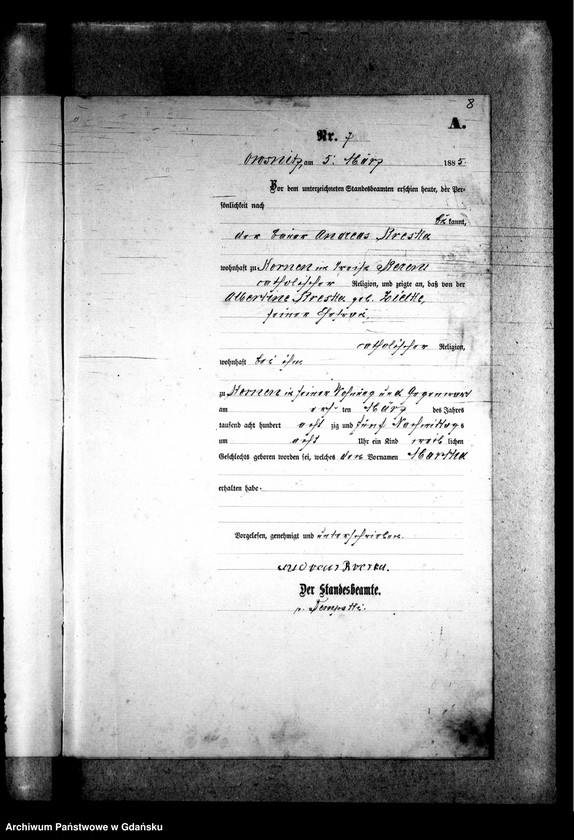 8
A.
Nr. 7
am 5. März 1885
Vor dem unterzeichneten Standesbeamten erschien heute, der Per-
sönlichkeit nach
bekannt,
der Bauer Andreas
wohnhaft zu im Kreise
catholischer Religion, und zeigte an, daß von der
Albertine geb. Zielke,
seiner Ehefrau,
catholischer Religion,
wohnhaft bei ihm
zu in seiner Wohnung und Gegenwart
am ten März des Jahres
tausend acht hundert acht zig und fünf Nachmittags
um acht Uhr ein Kind weib lichen
Geschlechts geboren worden sei, welches den Vornamen Martha
erhalten habe.
Vorgelesen, genehmigt und unterschrieben.
Der Standesbeamte.
Archiwum Państwowe w Gdańsku